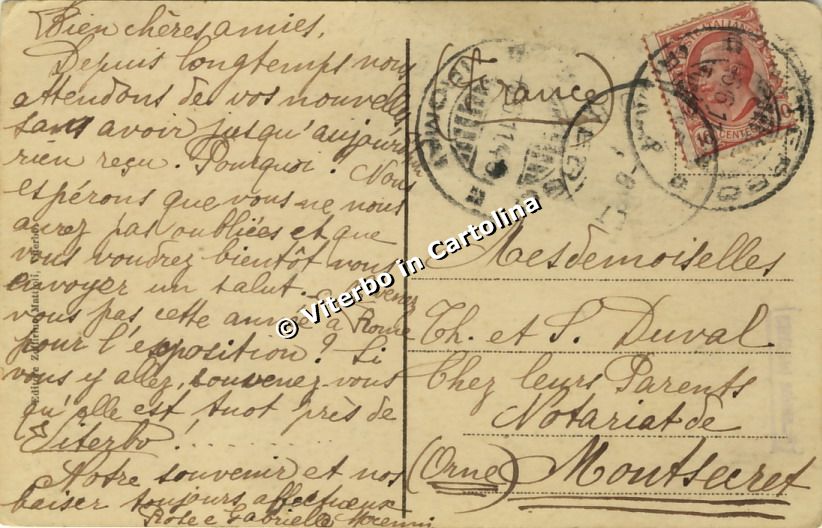 Bien chères amies,
Depuis longtemps nous
attendons de vos nouvelles
sans avoir jusqu'aujourd'hui
rien reçu. Pourquoi? Nous
espérons que vous ne nous
aurez pas oubliées et que
vous voudrez bientôt nous
envoyer un salut. Ne venez
vous pas cette année à Rome
pour l'exposition? Si
vous y allez, souvenez vous
qu'elle est tuot près de
Viterbo!.........
Notre souvenir et nos
baiser toujours affectueux
Rose e Gabrielle
(France)
Mesdemoiselles
Th. et S. Duval
Chez leurs Parents
Notariat de
(Orne) Montsecret
© Viterbo in Cartolina
Viterbo
VITERBO
CENTES